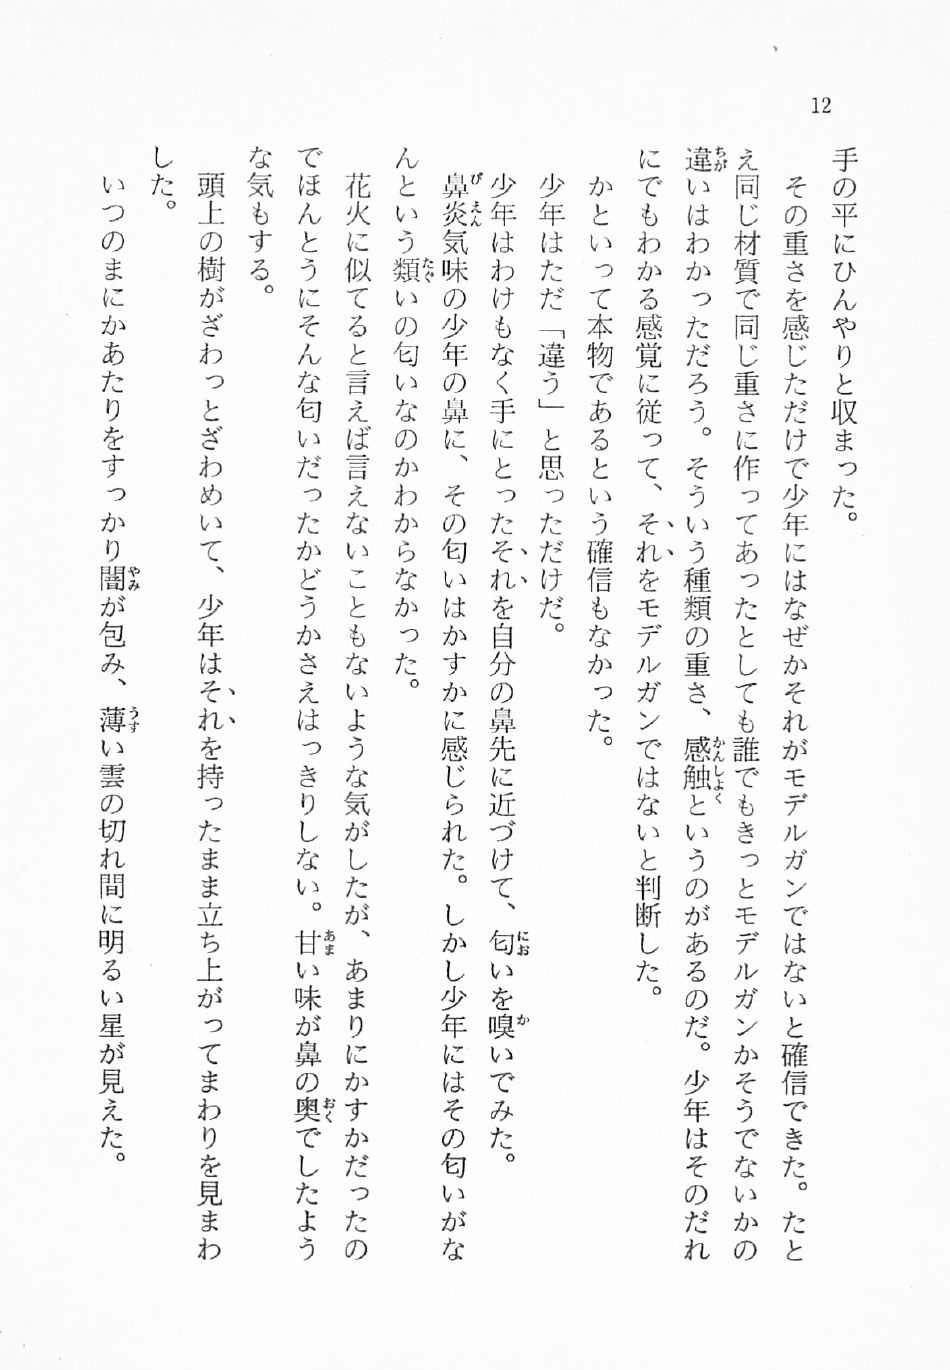 12
手の平にひんやりと収まった。
その重さを感じただけで少年にはなぜかそれがモデルガンではないと確信できた。たと
え同じ材質で同じ重さに作ってあったとしても誰でもきっとモデルガンかそうでないかの
違いはわかっただろう。そういう種類の重さ、感触というのがあるのだ。少年はそのだれ
にでもわかる感覚に従って、それをモデルガンではないと判断した。
かといって本物であるという確信もなかった。
少年はただ「違う」と思っただけだ。
少年はわけもなく手にとったそれを自分の鼻先に近づけて、匂いを嗅いでみた。
鼻炎気味の少年の鼻に、その匂いはかすかに感じられた。しかし少年にはその匂いがな
んという類いの匂いなのかわからなかった。
花火に似てると言えば言えないこともないような気がしたが、あまりにかすかだったの
でほんとうにそんな匂いだったかどうかさえはっきりしない。甘い味が鼻の奥でしたよう
な気もする。
頭上の樹がざわっとざわめいて、少年はそれを持ったまま立ち上がってまわりを見まわ
した。
いつのまにかあたりをすっかり闇が包み、薄い雲の切れ間に明るい星が見えた。